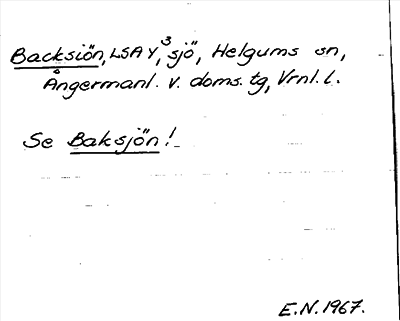 Backsiön, LSA Y, 3 sjö, Helgums sn,
Ångermanl. v. doms. tg, Vrnl. l.
Se Baksjön!
E.N. 1967.